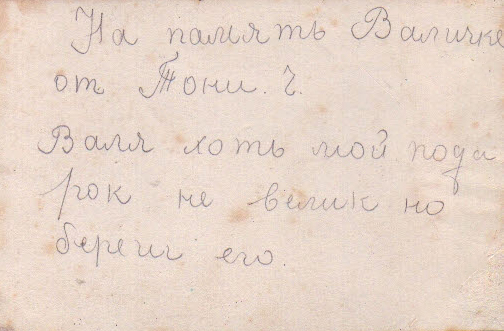 На память Валичке
от Тони. Ч.
Валя хоть мой пода
рок не велик но
береги его.